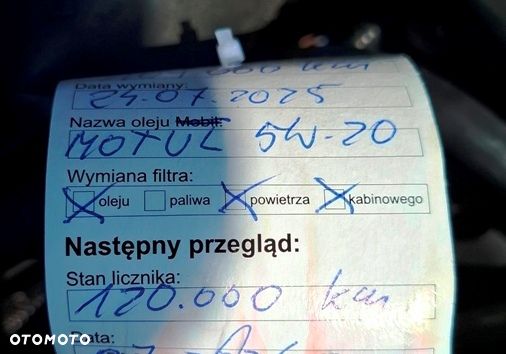 000 km
Data wymiany:
24.07.2025
Nazwa oleju Mobil:
MOTUL 5W-20
Wymiana filtra:
oleju paliwa powietrza kabinowego
Następny przegląd:
Stan licznika:
120.000 km
Data:
OTOMOTO